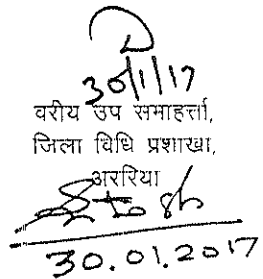 30/1/17
वरीय उप समाहर्त्ता,
जिला विधि प्रशाखा,
अररिया
30.01.2017